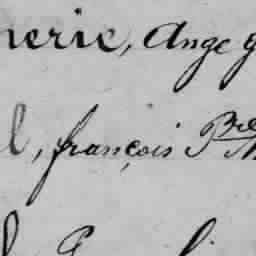 nerie, Ange g
l, françois P.re M